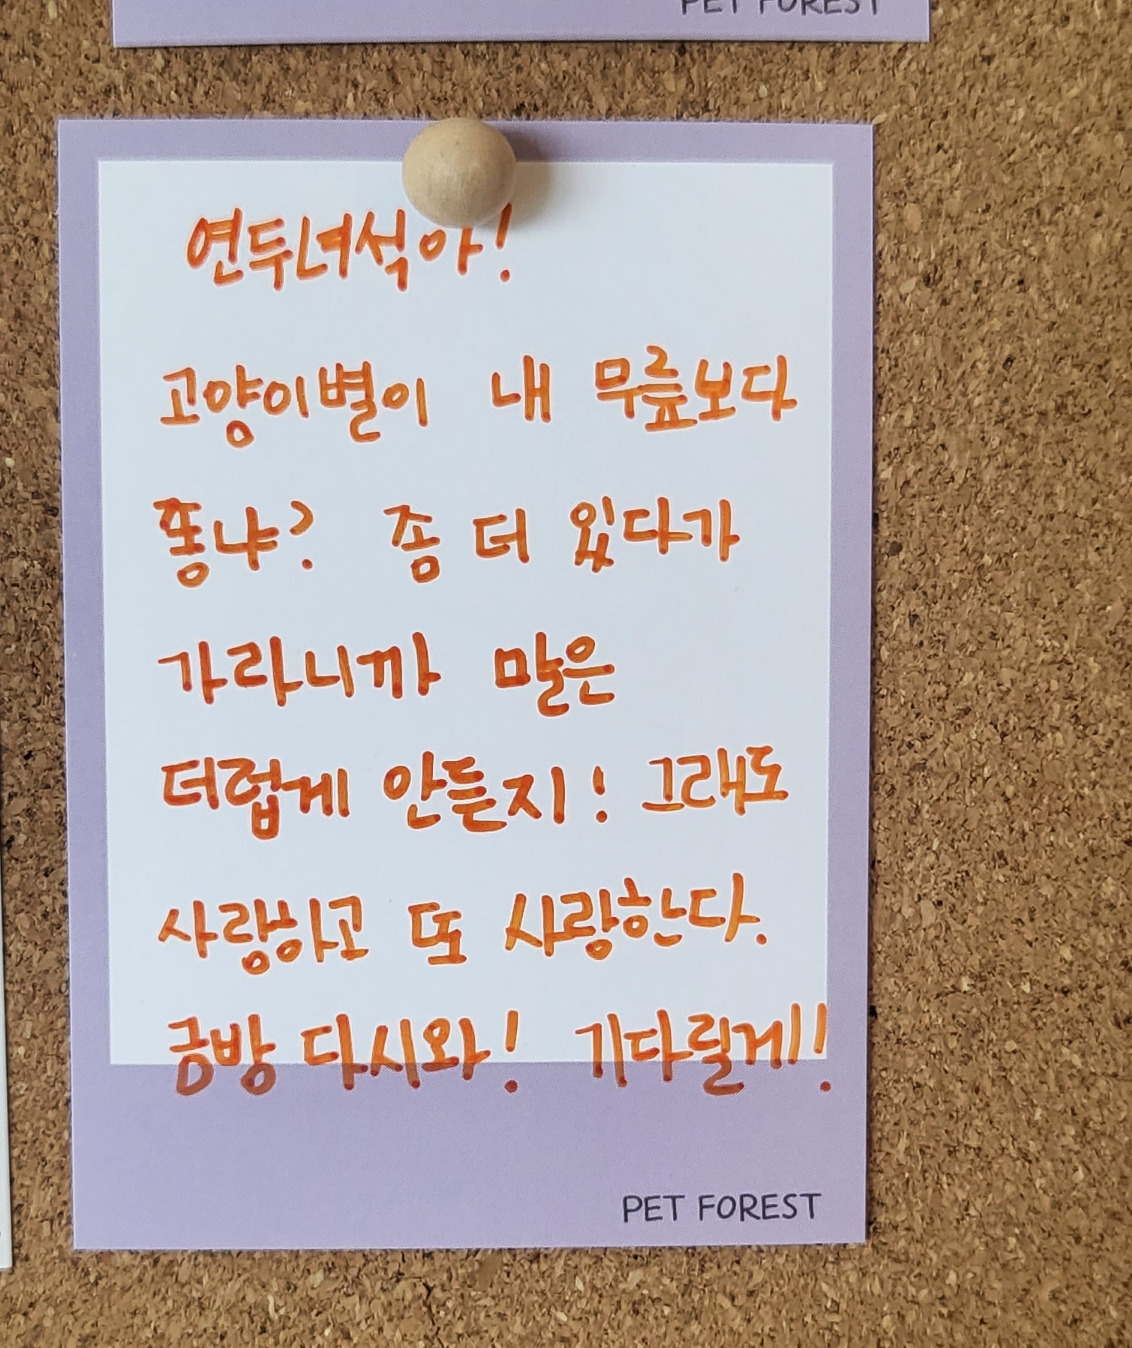 PET FOREST
연두녀석아!
고양이별이 내 무릎보다
퐁냐? 좀 더 있다가
가라니까 말은
더럽게 안듣지! 그래도
사랑하고 또 사랑한다.
금방 다시와! 기다릴게!!
PET FOREST